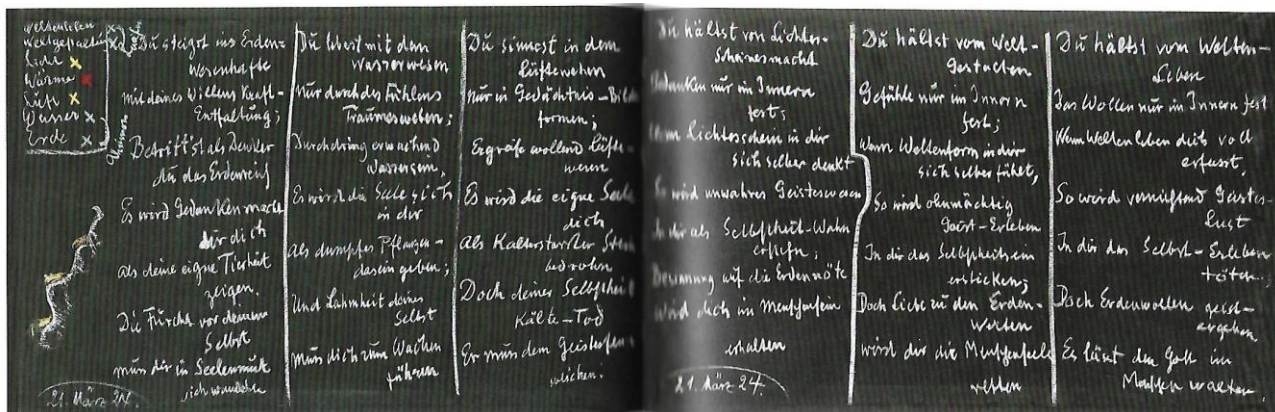 Weltenleben
Weltgestaltung
Licht
Wärme
Luft
Wasser
Erde
Du steigst ins Erden-
Wesenhafte
mit deines Willens Kraft-
Entfaltung;
Betritst als Denker
du das Erdenreich
Es wird Gedankenmacht
dir dich
als deine eigne Tierheit
zeigen.
Die Furcht vor deinem
Selbst
muss dir in Seelenmut
sich wandeln
21. März 24.
Du lebest mit dem
Wasserwesen
Nur durch des Fühlens
Träumesweben;
Durchdring erwachend
Wassersein,
Es wird die Seele sich
in dir
als dumpfes Pflanzen-
dasein geben;
Und Lahmheit deines
Selbst
Muss dich zum Wachen
führen
Du sinnest in dem
Lüftewehen
Nur in Gedächtnis-Bilde
formen;
Ergreife wollend Lüfte-
wesen
Es wird die eigne Seele
dich
Als kalterstarrter Stein
bedrohn
Doch deiner Selbstheit
Kälte-Tod
Er muss dem Geistesfeuer
weichen.
Du hältst von Lichtes-
Scheinesmacht
Gedanken nur im Innern
fest;
Wenn Lichtesschein in dir
sich selber denkt
So wird unwahres Geisteswesen
In dir als Selbstheit-Wahn
erstehn;
Besinnung auf die Erdennöte
Wird dich im Menschensein
erhalten
21. März 24.
Du hältst vom Welt-
Gestalten
Gefühle nur im Innern
fest;
Wenn Weltenform in dir
sich selber fühlt,
So wird ohnmächtig
Geist-Erleben
In dir das Selbstheitsein
ersticken;
Doch Liebe zu den Erden-
Werten
wird dir die Menschenseele
retten
Du hältst vom Welten-
Leben
Das Wollen nur im Innern fest
Wenn Weltenleben dich voll
erfasst,
So wird vernichtend Geistes-
Lust
In dir das Selbst-Erleben
töten;
Doch Erdenwollen geist-
ergeben
Es lässt den Gott im
Menschen walten.